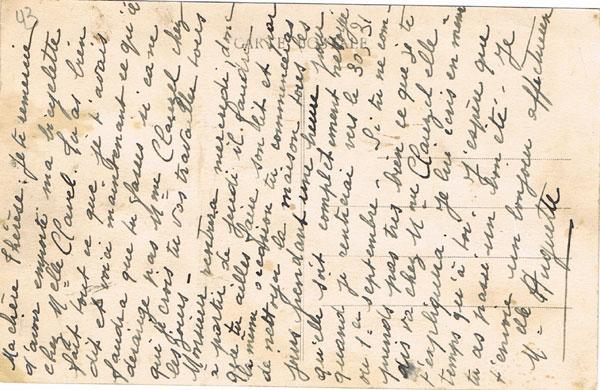 23
CARTE POSTALE
Ma chère Thérèse. Je te remercie
d'avoir emporté ma bicyclette
chez Melle Clavel. Tu as bien
fait tout ce que je t'avais
dit et voici maintenant ce qu'il
faudra que tu fasses si ça ne
dérange pas Mme Clauzel chez
qui je crois tu vas travailler tous
les jours -
Monsieur rentrera mercredi donc
à partir de jeudi il faudrait
que tu ailles faire son lit et par
la même occasion tu commenceras
de nettoyer la maison tous les
jours pendant une heure pour
qu'elle soit complètement nettoyée
quand je rentrerai vers le 30, 31
ou 1er septembre. Si tu ne com-
prends pas très bien ce que je te
dis va chez Mme Clauzel elle
t'expliquera. Je lui écris en même
temps qu'à toi. J'espère que
tu as passé un bon été. Je
t'envoie un bonjour affectueux
Melle Huguette